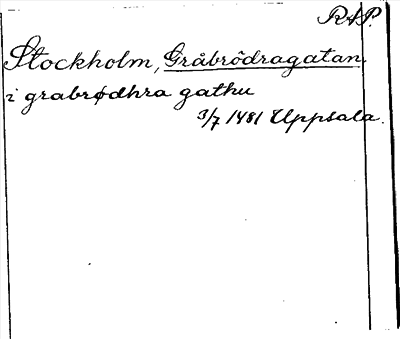 RAP.
Stockholm, Gråbrödragatan.
i grabrødhra gathu
3/7 1481 Uppsala.